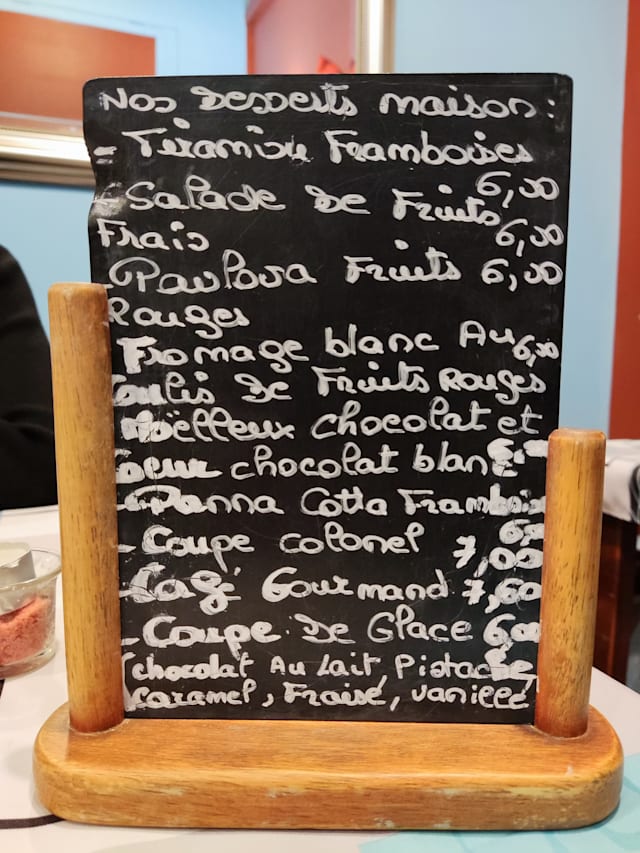 Nos Desserts maison :
- Tiramisu Framboises
6,00
- Salade de Fruits
Frais 6,00
- Pavlova Fruits 6,00
Rouges
Fromage blanc Au 6,00
Coulis de Fruits Rouges
Moëlleux chocolat et
coeur chocolat blanc
- Panna Cotta
- Coupe colonel 7,00
- Café Gourmand 7,60
- Coupe De Glace 6,00
(chocolat Au Lait, Pistache,
Caramel, Fraise, vanille